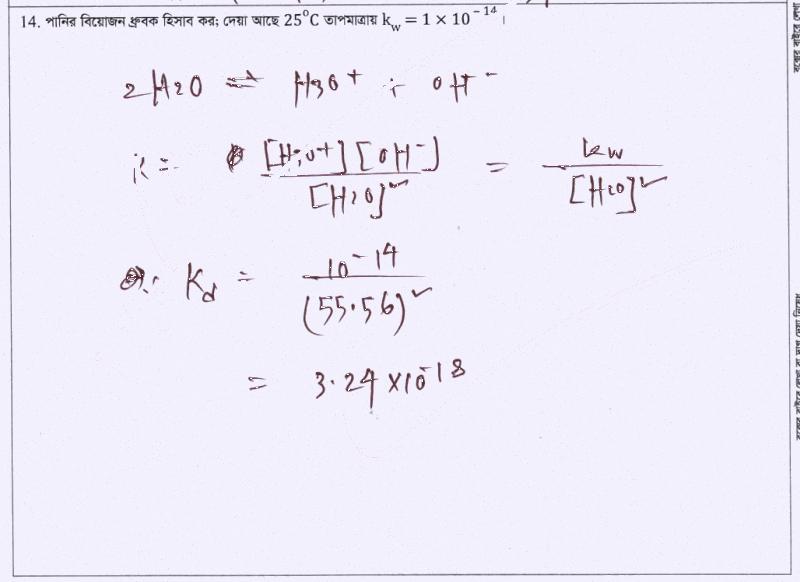 14. পানির বিয়োজন ধ্রুবক হিসাব কর; দেয়া আছে 25°C তাপমাত্রায় k_w = 1 × 10^-14।
2H2O ⇌ H3O+ + OH-
K = [H3O+][OH-] / [H2O]² = kw / [H2O]²
∴ Kd = 10^-14 / (55.56)²
= 3.24 × 10^-18